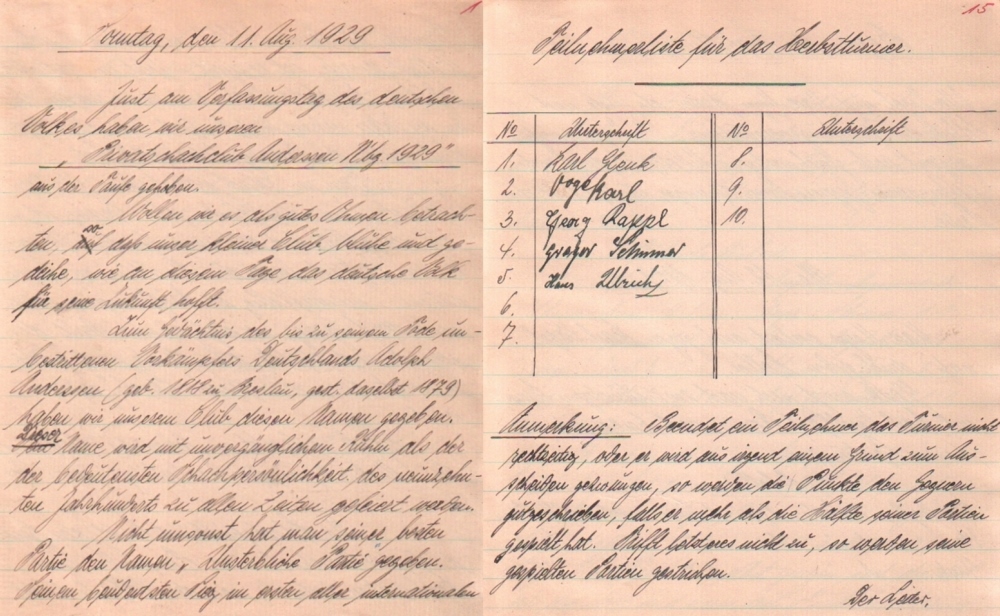 1
Sonntag, den 11. Aug. 1929
Just am Verfassungstag des deutschen
Volkes haben wir unseren
„Privatschachclub Anderssen Nbg 1929“
aus der Taufe gehoben.
Wollen wir es als gutes Ohmen betrach-
ten, so daß unser kleiner Club blühe und ge-
deihe, wie an diesem Tage das deutsche Volk
für seine Zukunft hofft.
Zum Gedächtnis des bis zu seinem Tode un-
bestrittenen Vorkämpfers Deutschlands Adolph
Anderssen (geb. 1818 zu Breslau, gest. daselbst 1879)
haben wir unserem Club diesen Namen gegeben.
Dieser Name wird mit unvergänglichem Ruhm als der
der bedeutensten Schachpersönlichkeit des neunzehn-
ten Jahrhunderts zu allen Zeiten gefeiert werden.
Nicht umsonst hat man seiner besten
Partie den Namen „Unsterbliche Partie gegeben.
Seinem bedeutendsten Sieg, im ersten aller internationalen
15
Teilnehmerliste für das Herbstturnier.
No Unterschrift No Unterschrift
1. Karl Zenk 8.
2. Voge Karl 9.
3. Georg Rappl 10.
4. Gregor Schimmer
5. Hans Ulbrich
6.
7.
Anmerkung: Beendet ein Teilnehmer das Turnier nicht
rechtzeitig, oder er wird aus irgend einem Grund zum Aus-
scheiden gezwungen, so werden die Punkte den Gegnern
gutgeschrieben, falls er mehr als die Hälfte seiner Partien
gespielt hat. Trifft letzteres nicht zu, so werden seine
gespielten Partien gestrichen.
Der Leiter.